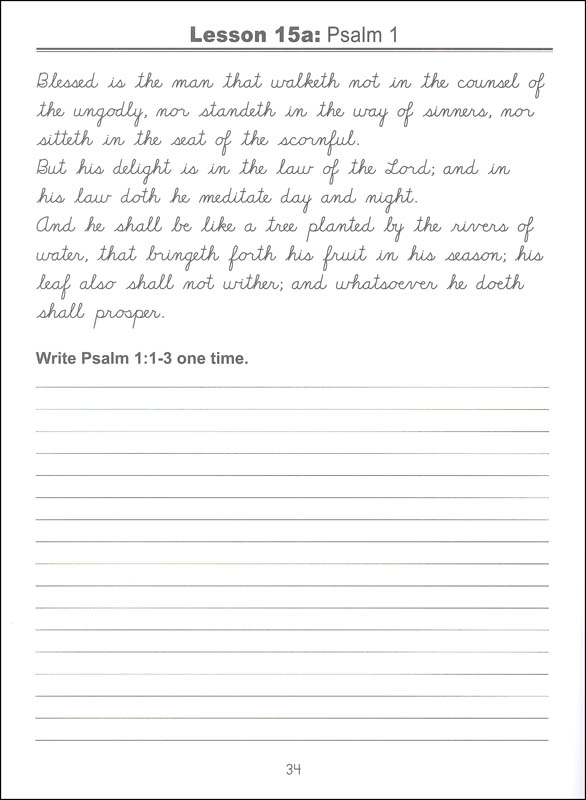 Lesson 15a: Psalm 1
Blessed is the man that walketh not in the counsel of
the ungodly, nor standeth in the way of sinners, nor
sitteth in the seat of the scornful.
But his delight is in the law of the Lord; and in
his law doth he meditate day and night.
And he shall be like a tree planted by the rivers of
water, that bringeth forth his fruit in his season; his
leaf also shall not wither; and whatsoever he doeth
shall prosper.
Write Psalm 1:1-3 one time.
34